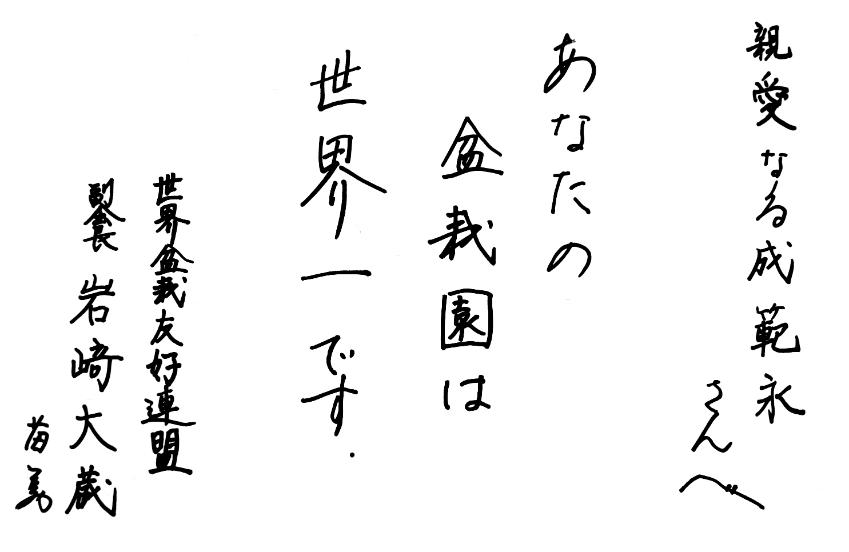 親愛なる成範永
さんへ
あなたの
盆栽園は
世界一です.
世界盆栽友好連盟
副会長 岩崎大蔵